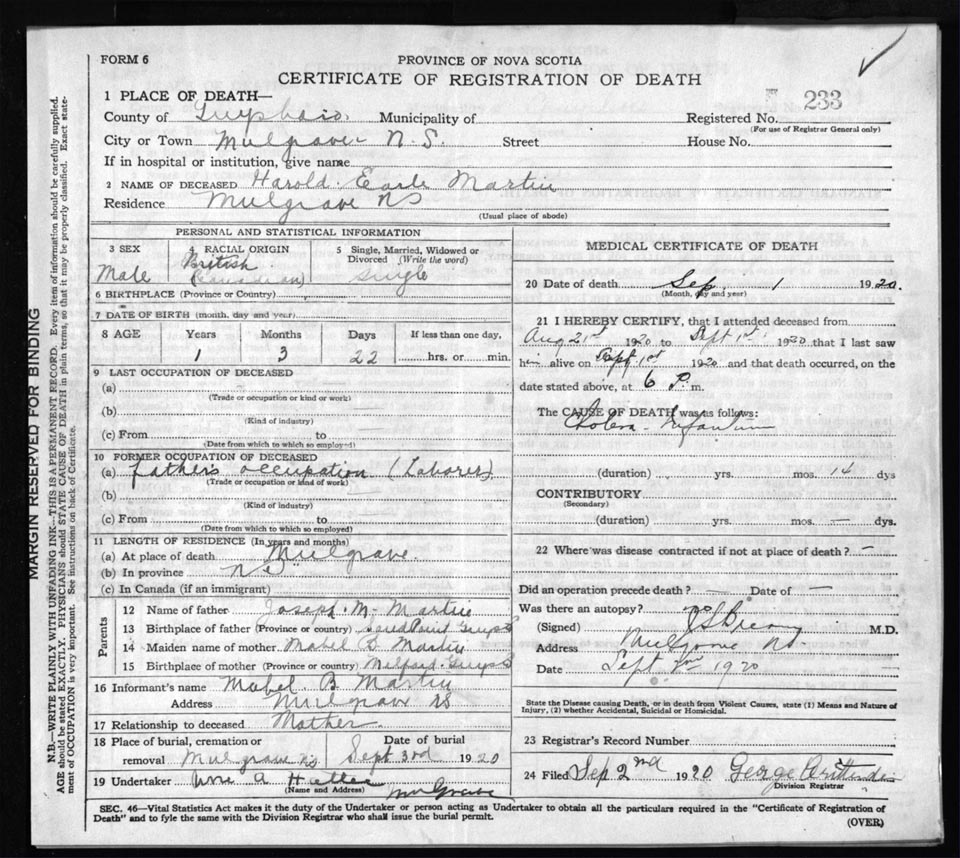 FORM 6
PROVINCE OF NOVA SCOTIA
CERTIFICATE OF REGISTRATION OF DEATH
233
1 PLACE OF DEATH—
County of Municipality of Registered No.
(For use of Registrar General only)
City or Town Mulgrave N.S. Street House No.
If in hospital or institution, give name
2 NAME OF DECEASED Harold Earle Martin
Residence Mulgrave NS
(Usual place of abode)
PERSONAL AND STATISTICAL INFORMATION
3 SEX Male
4 RACIAL ORIGIN British (Canadian)
5 Single, Married, Widowed or Divorced (Write the word) Single
6 BIRTHPLACE (Province or Country)
7 DATE OF BIRTH (month, day and year)
8 AGE Years Months Days If less than one day,
1 3 22 hrs. or min.
9 LAST OCCUPATION OF DECEASED
(a)
(Trade or occupation or kind or work)
(b)
(Kind of industry)
(c) From to
(Date from which to which so employed)
10 FORMER OCCUPATION OF DECEASED
(a) Father's occupation (Laborer)
(Trade or occupation or kind of work)
(b)
(Kind of industry)
(c) From to
(Date from which to which so employed)
11 LENGTH OF RESIDENCE (In years and months)
(a) At place of death Mulgrave
(b) In province NS
(c) In Canada (if an immigrant)
Parents
12 Name of father Joseph M. Martin
13 Birthplace of father (Province or country)
14 Maiden name of mother Mabel B Martin
15 Birthplace of mother (Province or country) Milford
16 Informant's name Mabel B Martin
Address Mulgrave NS
17 Relationship to deceased Mother
18 Place of burial, cremation or removal Mulgrave NS
Date of burial Sept 3rd 1920
19 Undertaker Wm A Mulgrave
(Name and Address)
MEDICAL CERTIFICATE OF DEATH
20 Date of death Sep. 1 1920.
(Month, day and year)
21 I HEREBY CERTIFY, that I attended deceased from
Aug 21st 1920 to Sept 1st 1920 that I last saw
him alive on Sept 1st 1920 and that death occurred, on the
date stated above, at 6 P. m.
The CAUSE OF DEATH was as follows:
Cholera Infantum
(duration) yrs. mos. 14 dys
CONTRIBUTORY
(Secondary)
(duration) yrs. mos. — dys.
22 Where was disease contracted if not at place of death? —
Did an operation precede death? — Date of —
Was there an autopsy? no
(Signed) M.D.
Address Mulgrave NS
Date Sept 1920
State the Disease causing Death, or in death from Violent Causes, state (1) Means and Nature of
Injury, (2) whether Accidental, Suicidal or Homicidal.
23 Registrar's Record Number
24 Filed Sep 2nd 1920 George
Division Registrar
SEC. 46—Vital Statistics Act makes it the duty of the Undertaker or person acting as Undertaker to obtain all the particulars required in the "Certificate of Registration of
Death" and to fyle the same with the Division Registrar who shall issue the burial permit.
(OVER)
MARGIN RESERVED FOR BINDING
N.B.—WRITE PLAINLY WITH UNFADING INK—THIS IS A PERMANENT RECORD. Every item of information should be carefully supplied.
AGE should be stated EXACTLY. PHYSICIANS should STATE CAUSE OF DEATH in plain terms, so that it may be properly classified. Exact state-
ment of OCCUPATION is very important. See instructions on back of Certificate.